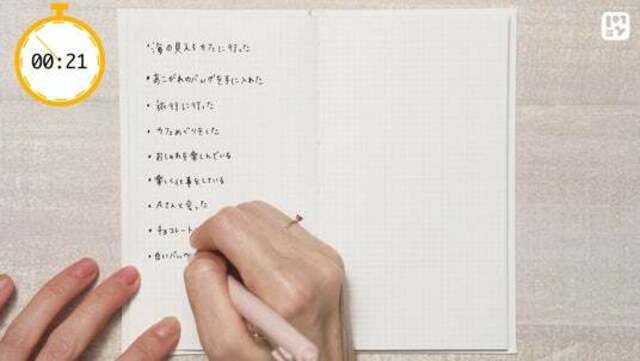 00:21
・海の見えるカフェに行った
・あこがれのバッグを手に入れた
・旅行に行った
・カフェめぐりをした
・おしゃれを楽しんでいる
・楽しく仕事をしている
・Aさんと会った
・チョコレート
・白いバッグ